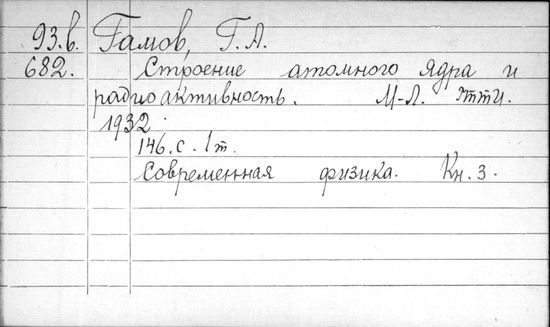 93.в. Гамов, Г. А.
682. Строение атомного ядра и
радиоактивность. М-Л. ГТТИ.
1932.
146. с. 1 т.
Современная физика. Кн. 3.